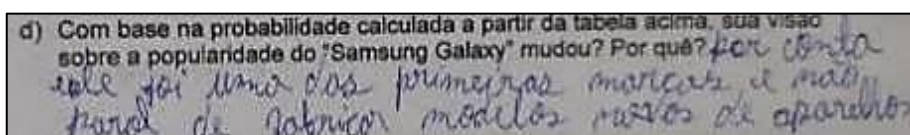 d) Com base na probabilidade calculada a partir da tabela acima, sua visão
sobre a popularidade do "Samsung Galaxy" mudou? Por quê? por conta
ele foi uma das primeiras marcas e não
parol de fabricar modelos novos de aparelhos